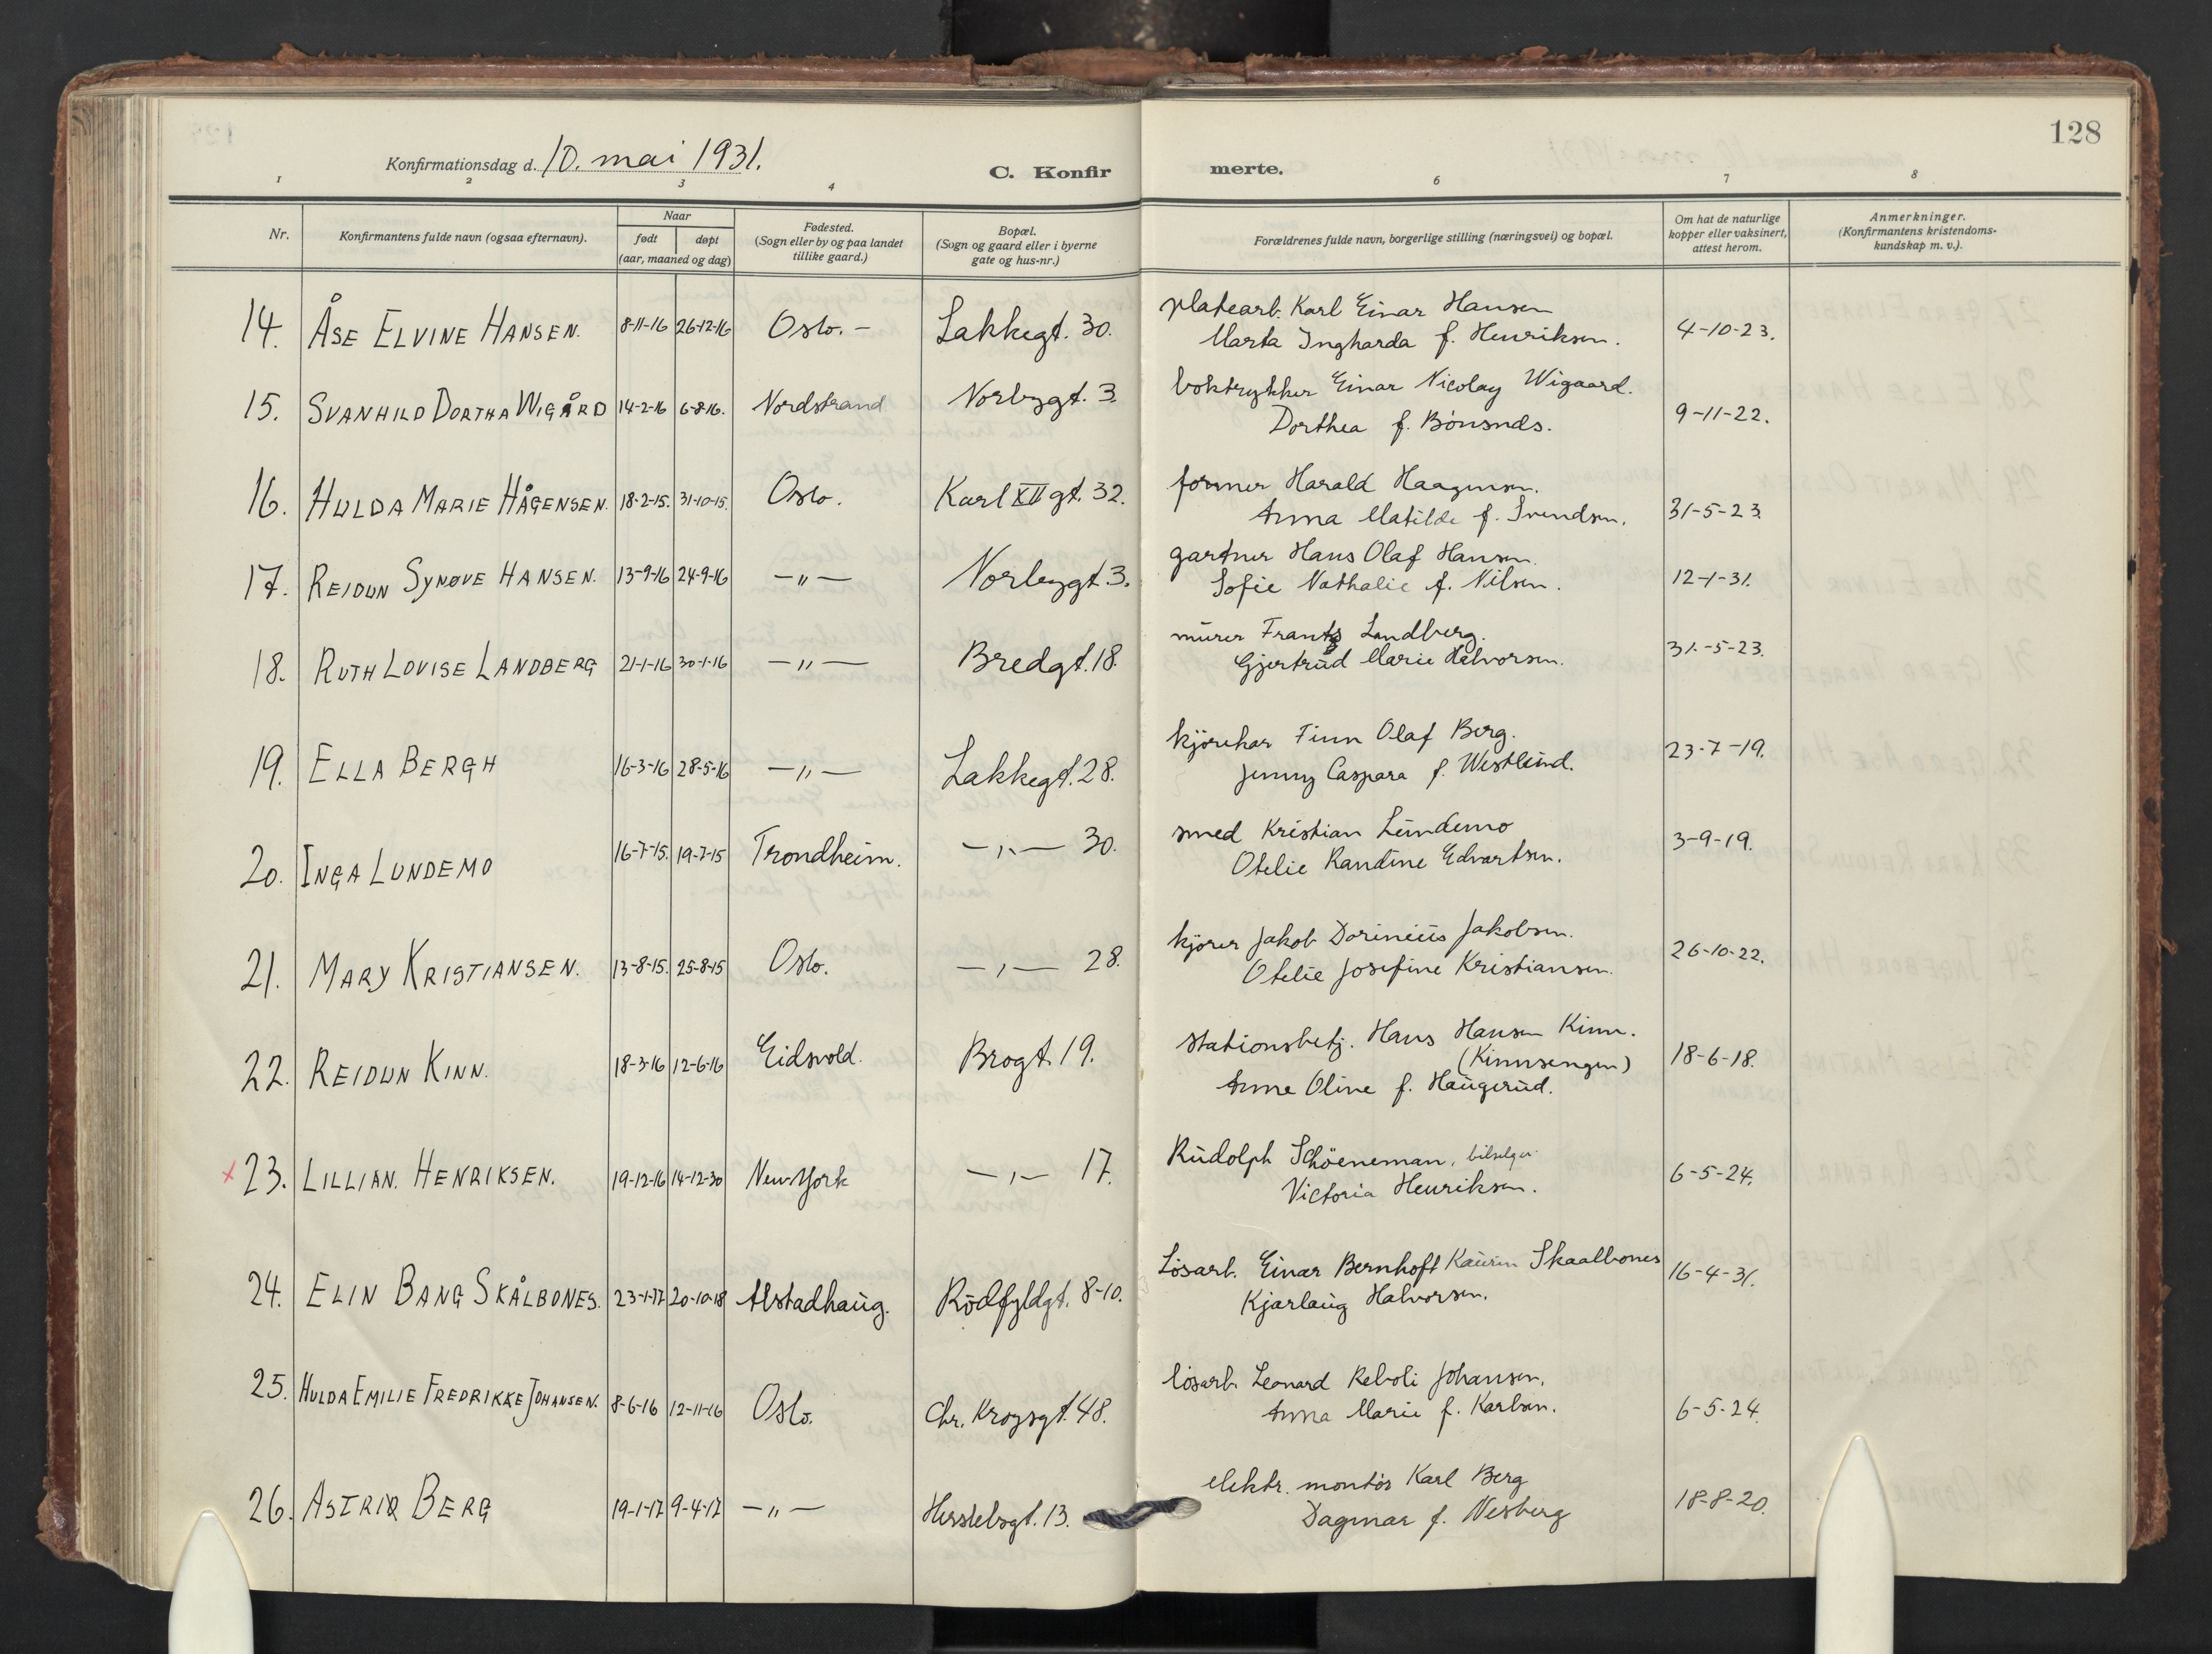 128
Konfirmationsdag d. 10. mai 1931.
C. Konfir merte.
1 2 3 4 6 7 8
Nr.
Konfirmantens fulde navn (ogsaa efternavn).
Naar
født døpt
(aar, maaned og dag)
Fødested.
(Sogn eller by og paa landet
tillike gaard.)
Bopæl.
(Sogn og gaard eller i byerne
gate og hus-nr.)
Forældrenes fulde navn, borgerlige stilling (næringsvei) og bopæl.
Om hat de naturlige
kopper eller vaksinert,
attest herom.
Anmerkninger.
(Konfirmantens kristendoms-
kundskap m. v.).
14. ÅSE ELVINE HANSEN. 8-11-16 26-12-16 Oslo. – Lakkegt. 30.
platearb. Karl Einar Hansen
Marta Ingharda f. Henriksen. 4-10-23.
15. SVANHILD DORTHA WIGÅRD 14-2-16 6-8-16. Nordstrand Norbygt. 3.
boktrykker Einar Nicolay Wigaard.
Dorthea f. Bönsnds. 9-11-22.
16. HULDA MARIE HÅGENSEN. 18-2-15. 31-10-15. Oslo. Karl XII gt. 32.
former Harald Haagensen.
Anna Matilde f. Svendsen. 31-5-23.
17. REIDUN SYNØVE HANSEN. 13-9-16 24-9-16 –〃– Norbygt. 3.
gartner Hans Olaf Hansen.
Sofie Nathalie f. Nilsen. 12-1-31.
18. RUTH LOVISE LANDBERG 21-1-16 30-1-16 –〃– Bredgt. 18.
murer Frantz Landberg.
Gjertrud Marie Halvorsen. 31.-5-23.
19. ELLA BERGH 16-3-16 28-5-16 –〃– Lakkegt. 28.
kjörekar Finn Olaf Berg.
Jenny Caspara f. Westlund. 23-7-19.
20. INGA LUNDEMO 16-7-15. 19-7-15 Trondheim. –〃– 30.
smed Kristian Lundemo
Otelie Randine Edvartsen. 3-9-19.
21. MARY KRISTIANSEN. 13-8-15. 25-8-15 Oslo. –〃– 28.
kjörer Jakob Dorinius Jakobsen.
Otelie Josefine Kristiansen. 26-10-22.
22. REIDUN KINN. 18-3-16 12-6-16 Eidsvold. Brogt. 19.
stationsbetj. Hans Hansen Kinn.
(Kinnsengen)
Anne Oline f. Haugerud. 18-6-18.
x 23. LILLIAN. HENRIKSEN. 19-12-16 14-12-30 New-York –〃– 17.
Rudolph Schöeneman, bilselger
Victoria Henriksen. 6-5-24.
24. ELIN BANG SKÅLBONES. 23-1-17 20-10-18 Alstadhaug. Rödfyldgt. 8-10.
Lösarb. Einar Bernhoft Kaurin Skaalbones
Kjarlaug Halvorsen. 16-4-31.
25. HULDA EMILIE FREDRIKKE JOHANSEN. 8-6-16 12-11-16 Oslo. Chr. Krogsgt. 48.
lösarb. Leonard Reboli Johansen.
Anna Marie f. Karlsen. 6-5-24.
26. ASTRID BERG 19-1-17 9-4-17 –〃– Herslebsgt. 13.
elektr. montör Karl Berg
Dagmar f. Nesberg 18-8-20.